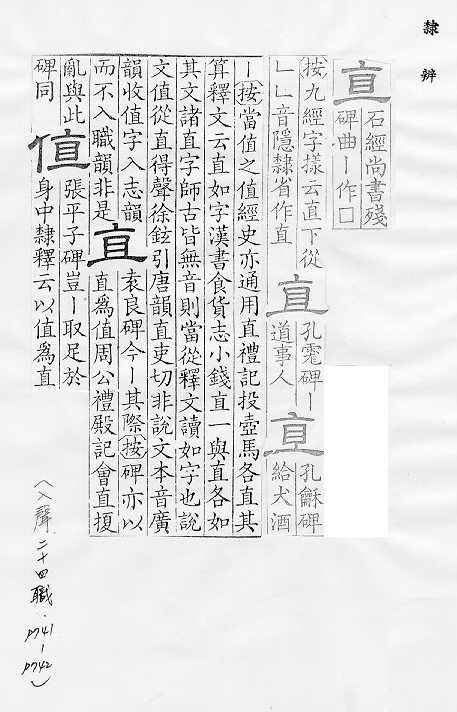 隸辨
直 石經尚書殘
碑曲丨作囗
按九經字樣云直下從
𠃊𠃊音隱隸省作直 直 孔宙碑丨
道事人 直 孔龢碑
給犬酒
丨按當值之值經史亦通用直禮記投壺馬各直其
算釋文云直如字漢書食貨志小錢直一與直各如
其文諸直字師古皆無音則當從釋文讀如字也說
文值從直得聲徐鉉引唐韻直吏切非說文本音廣
韻收值字入志韻
而不入職韻非是 直 袁良碑今丨其際按碑亦以
直爲值周公禮殿記會直擾
亂與此
碑同 值 張平子碑豈丨取足於
身中隸釋云以值爲直
(入聲 二十四職．P741-P742)